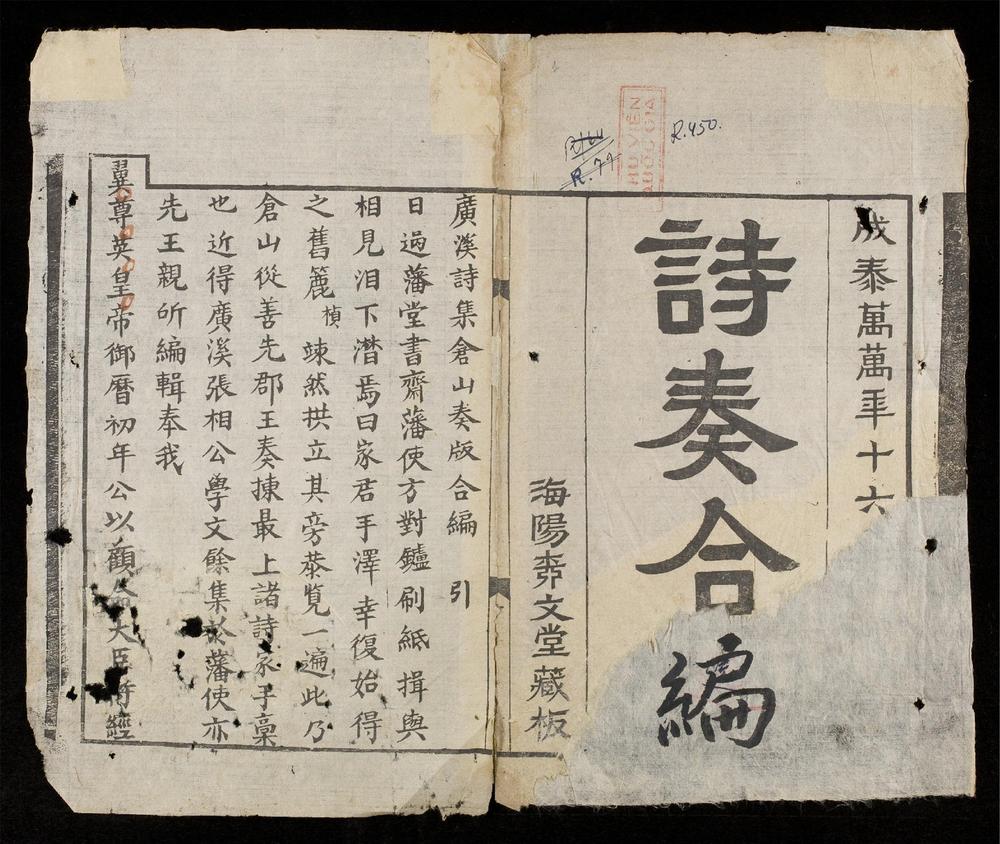 R.77
R.450.
成泰萬萬年十六
詩奏合編
海陽秀文堂藏板
廣溪詩集倉山奏版合編 引
日過藩堂書齋藩使方對鑪刷紙揖與
相見泪下潜焉曰家君手澤幸復始得
之舊簏楨竦然拱立其旁恭覧一遍此乃
倉山從善先郡王奏揀最上諸詩家手稾
也近得廣溪張相公學文餘集於藩使亦
先王親所編輯奉我
翼尊英皇帝御曆初年公以顧命大臣時經